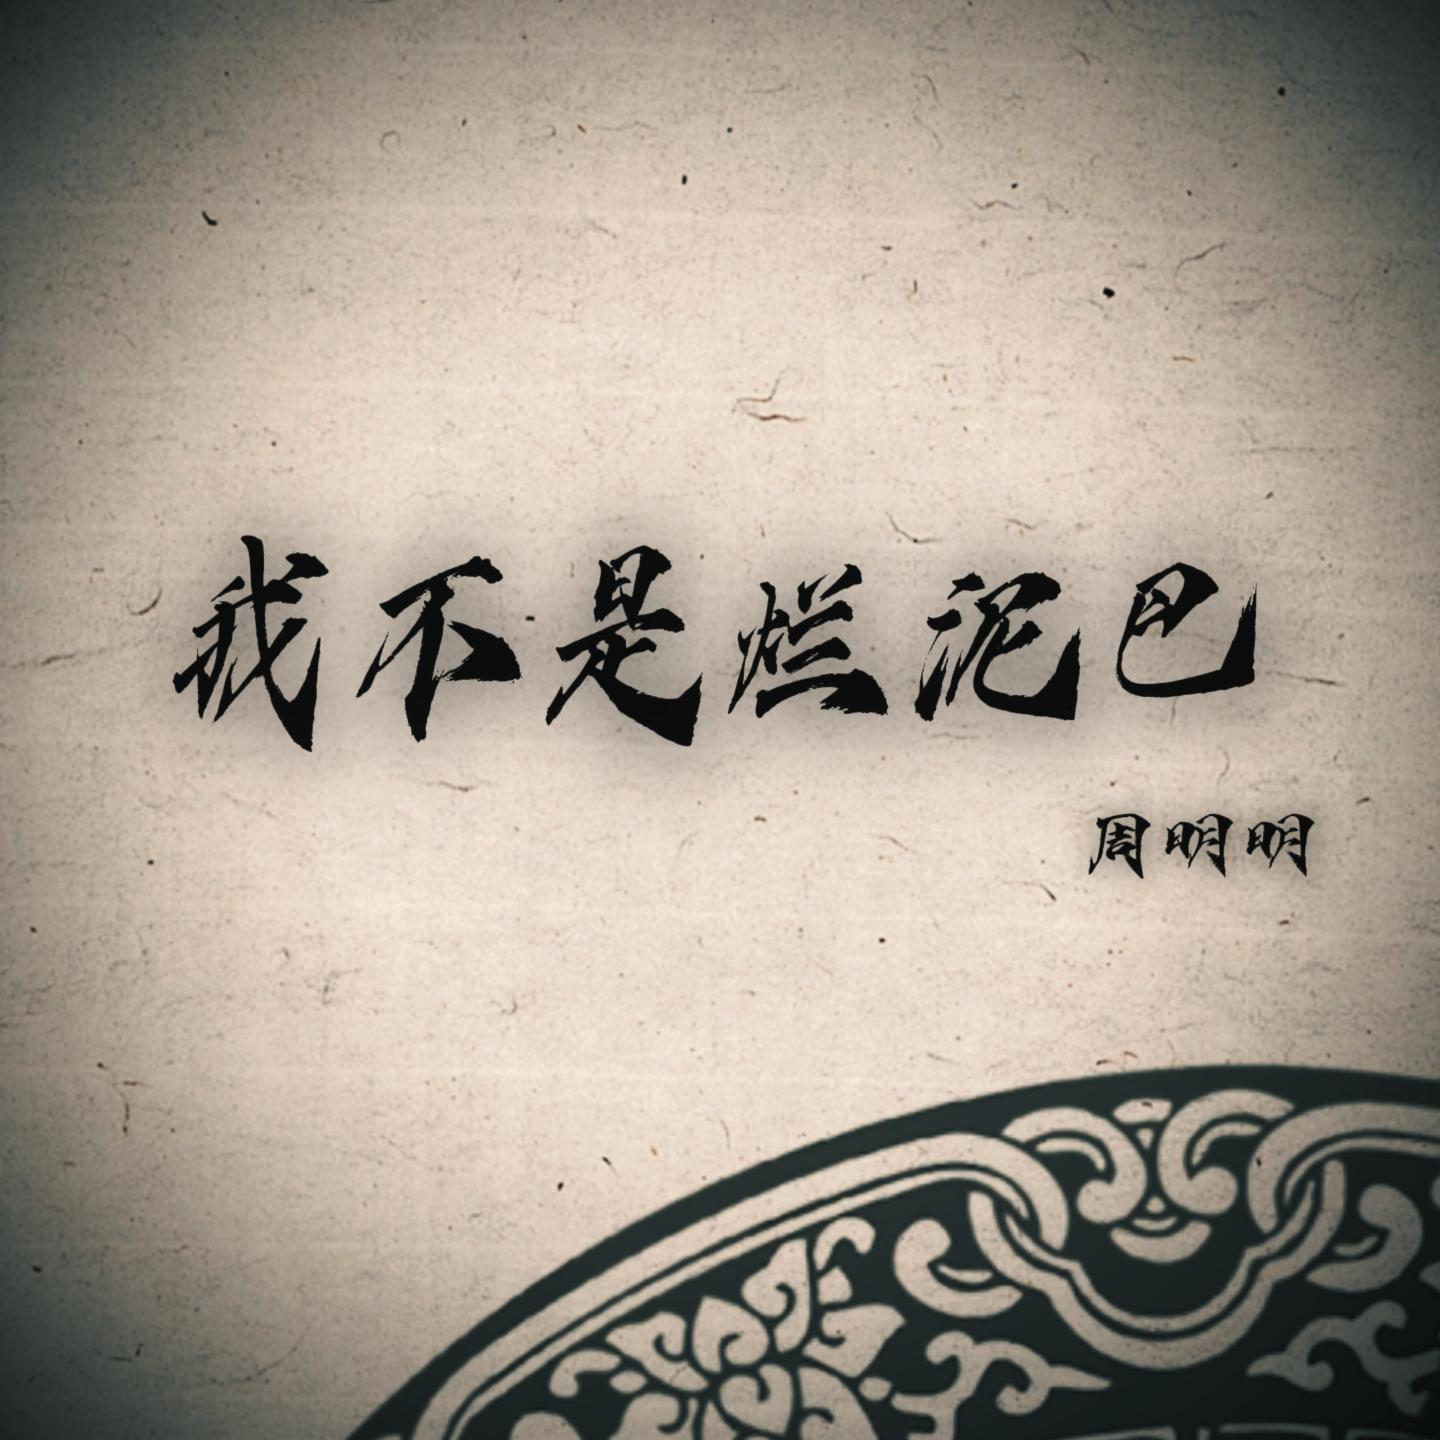 我不是烂泥巴
周明明